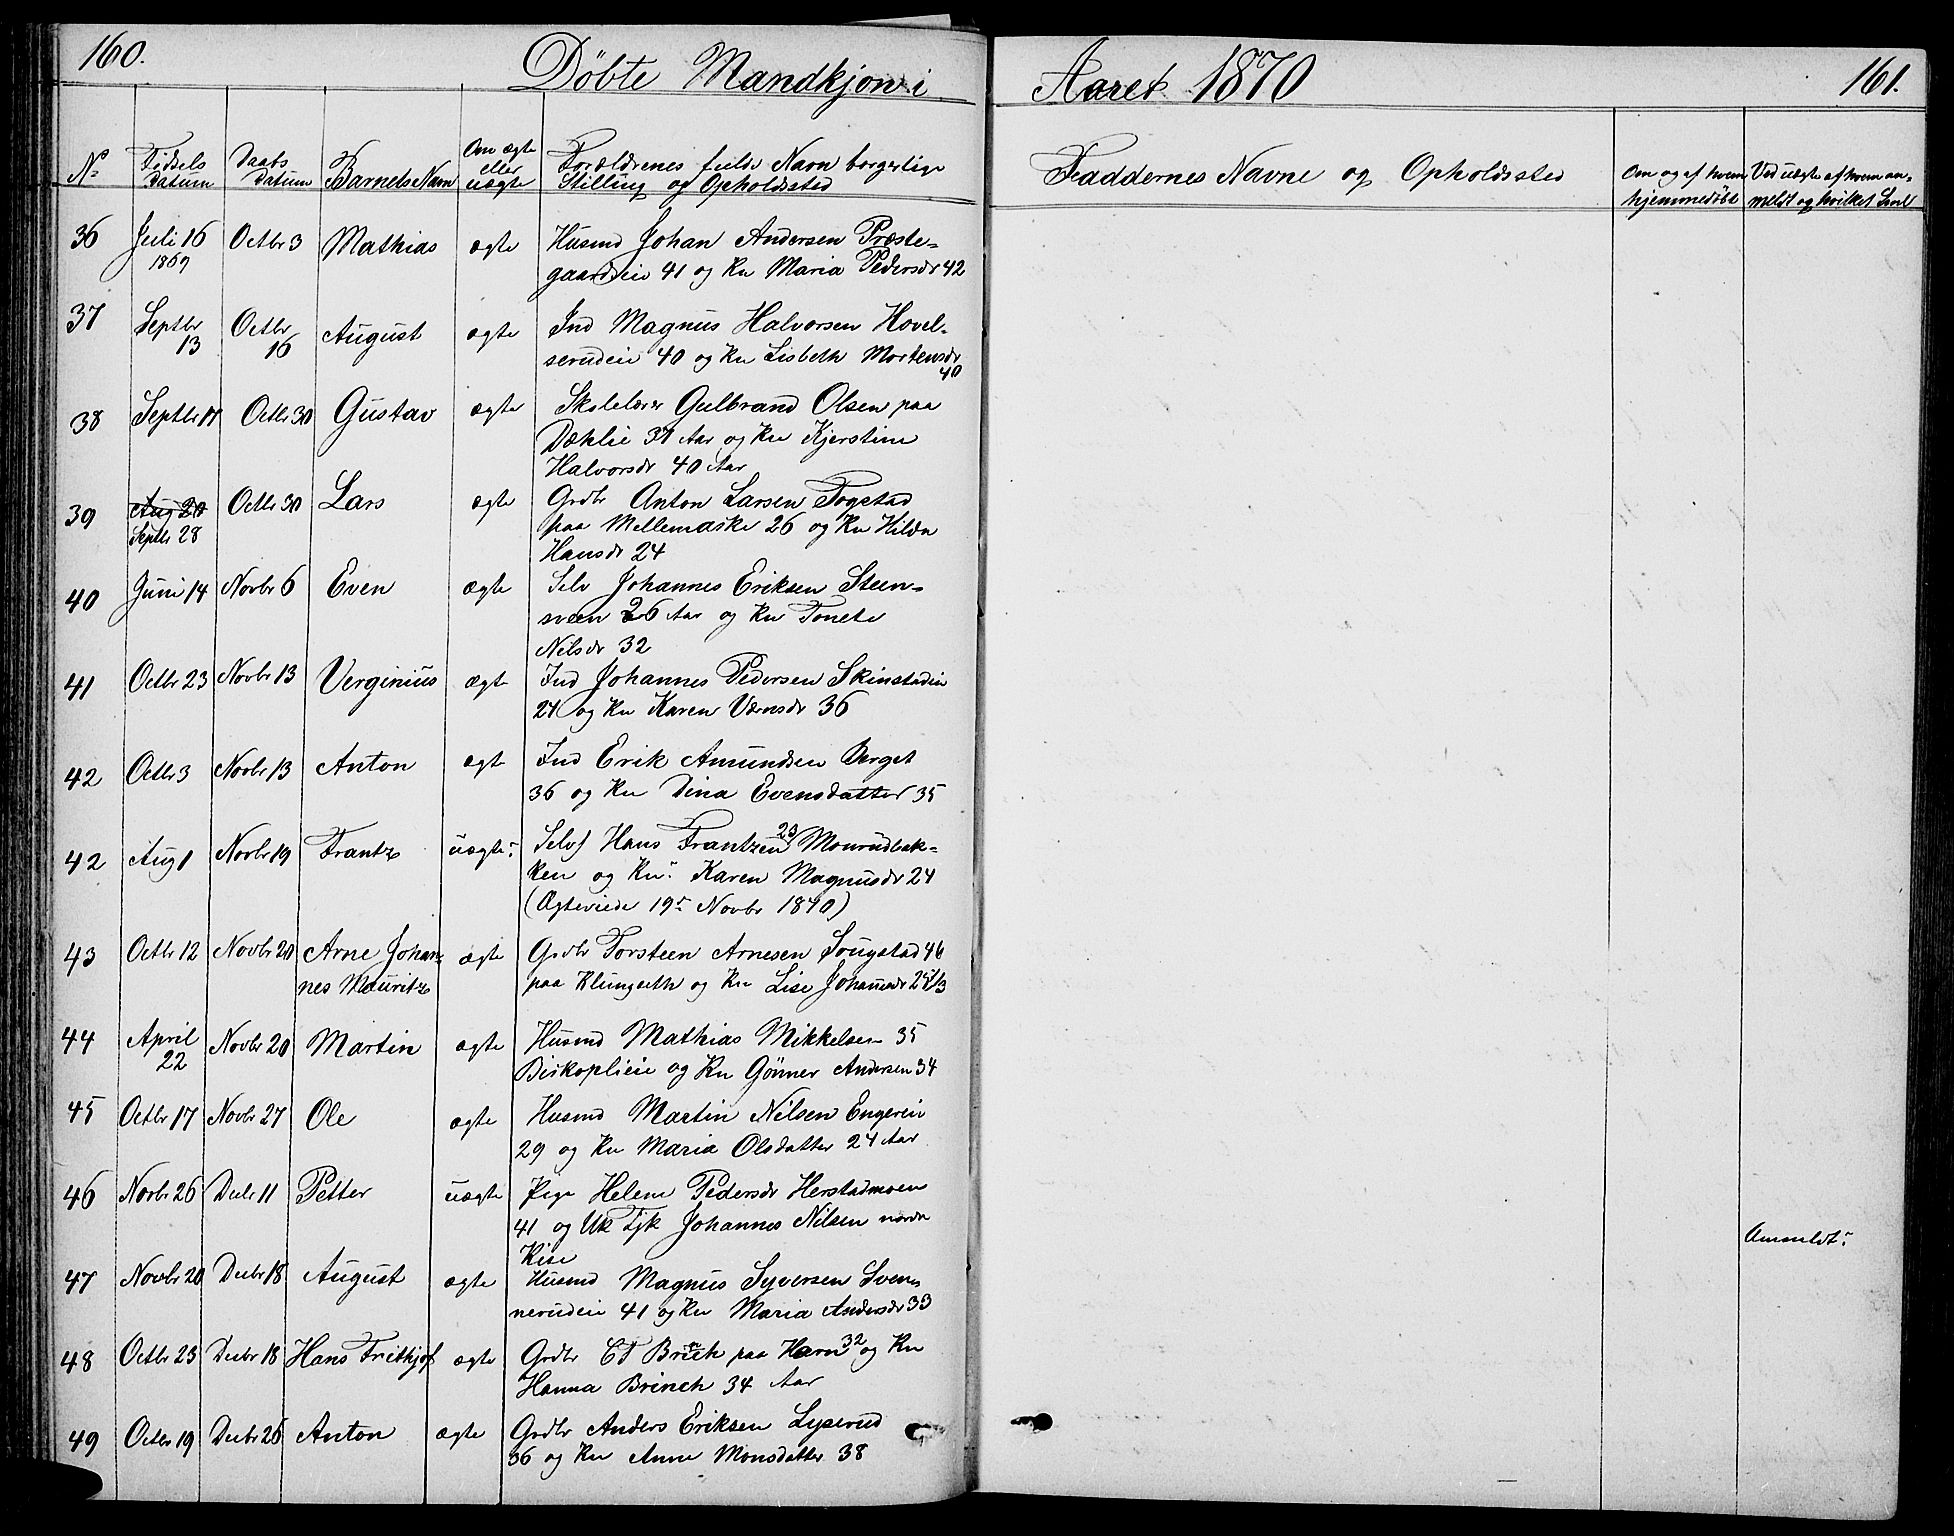 160.
Döbte Mandkjøn i
Aaret 1870
161.
No
Fødsels Datum
Daabs Datum
Barnets Navn
Om ægte eller uægte
Forældrenes fulde Navn borgerlige
Stilling og Opholdssted
Faddernes Navne og Opholdssted
Om og af hvem
hjemmedöbt
Ved uægte af hvem an-
meldt og hvilket
36 Juli 16 Octbr 3 Mathias ægte Husmd Johan Andersen Præste-
1869 gaardseie 41 og Ku Maria Pedersdr 42
37 Septbr 13 Octbr 16 August ægte Ind Magnus Halvorsen Hovel-
serudeie 40 og Ku Lisbeth Mortensdr
40
38 Septbr 17 Octbr 30 Gustav ægte Skolelærer Gulbrand Olsen paa
Dæhlie 37 Aar og Ku Kjerstine
Halvorsdr 40 Aar
39 Aug 20 Octbr 30 Lars ægte Grdbr Anton Larsen Fogstad
Septbr 28 paa Mellemaske 26 og Ku Hilda
Hansdr 24
40 Juni 14 Novbr 6 Even ægte Selv Johannes Eriksen Steen-
sveen 26 Aar og Ku Tonete
Nilsdr 32
41 Octbr 23 Novbr 13 Verginius ægt Ind Johannes Pedersen Skinstadeie
27 og Ku Karen 36
42 Octbr 3 Novbr 13 Anton ægt Ind Erik Amundsen Berget
36 og Ku Dina Evensdatter 35
42 Aug 1 Novbr 19 Frantz uægte Selvf Hans Frantzen 23 Monrudbak-
ken og Ku Karen Magnusdr 24
(Ægteviede 19 Novbr 1870)
43 Octbr 12 Novbr 20 Arne Johan- ægte Grdbr Torsteen Arnesen Sougstad 46
nes Mauritz paa Klungseth og Ku Lise Johansdr
44 April 22 Novbr 20 Martin ægte Husmd Mathias Mikkelsen 35
Biskoplieie og Ku Gönner Andersen 34
45 Octbr 17 Novbr 27 Ole ægte Husmd Martin Nilsen Engereie
29 og Ku Maria Olsdatter 24 Aar
46 Novbr 26 Decbr 11 Petter uægte Pige Helene Pedersdr Herstadmoen
41 og Uk Tjk Johannes Nilsen nordre
Kise
Anmeldt
47 Novbr 20 Decbr 18 August ægte Husmd Magnus Syversen Sven-
nerudeie 41 og Ku Maria Andersdr 33
48 Octbr 23 Decbr 18 Hans Frithjof ægte Grdbr CF Brinch paa Horn 32 og Ku
Hanna Brinch 34 Aar
49 Octbr 19 Decbr 26 Anton ægte Grdbr Anders Eriksen Lyserud
36 og Ku Anne Monsdatter 38